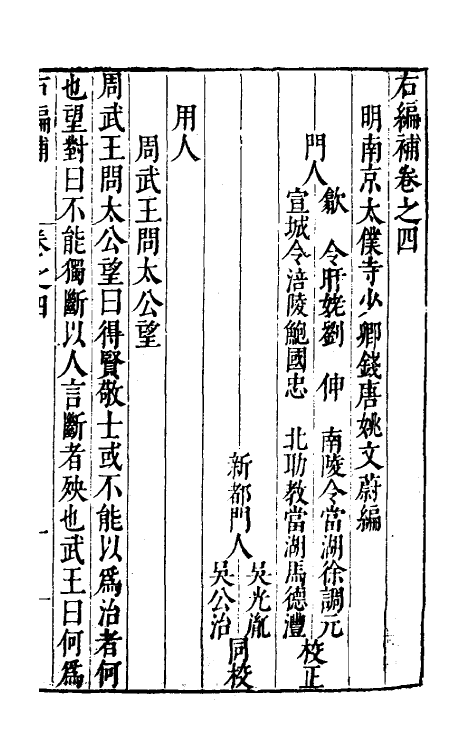 右編補卷之四
明南京太僕寺少卿錢唐姚文蔚編
門人
歙令肝姥劉伸 南陵令當湖徐調元
宣城令涪陵鮑國忠 北助教當湖馬德灃
校正
新都門人
吳光胤
吳公治
同校
用人
周武王問太公望
周武王問太公望曰得賢敬士或不能以爲治者何
也望對曰不能獨斷以人言斷者殃也武王曰何爲
右編補 卷之四 一